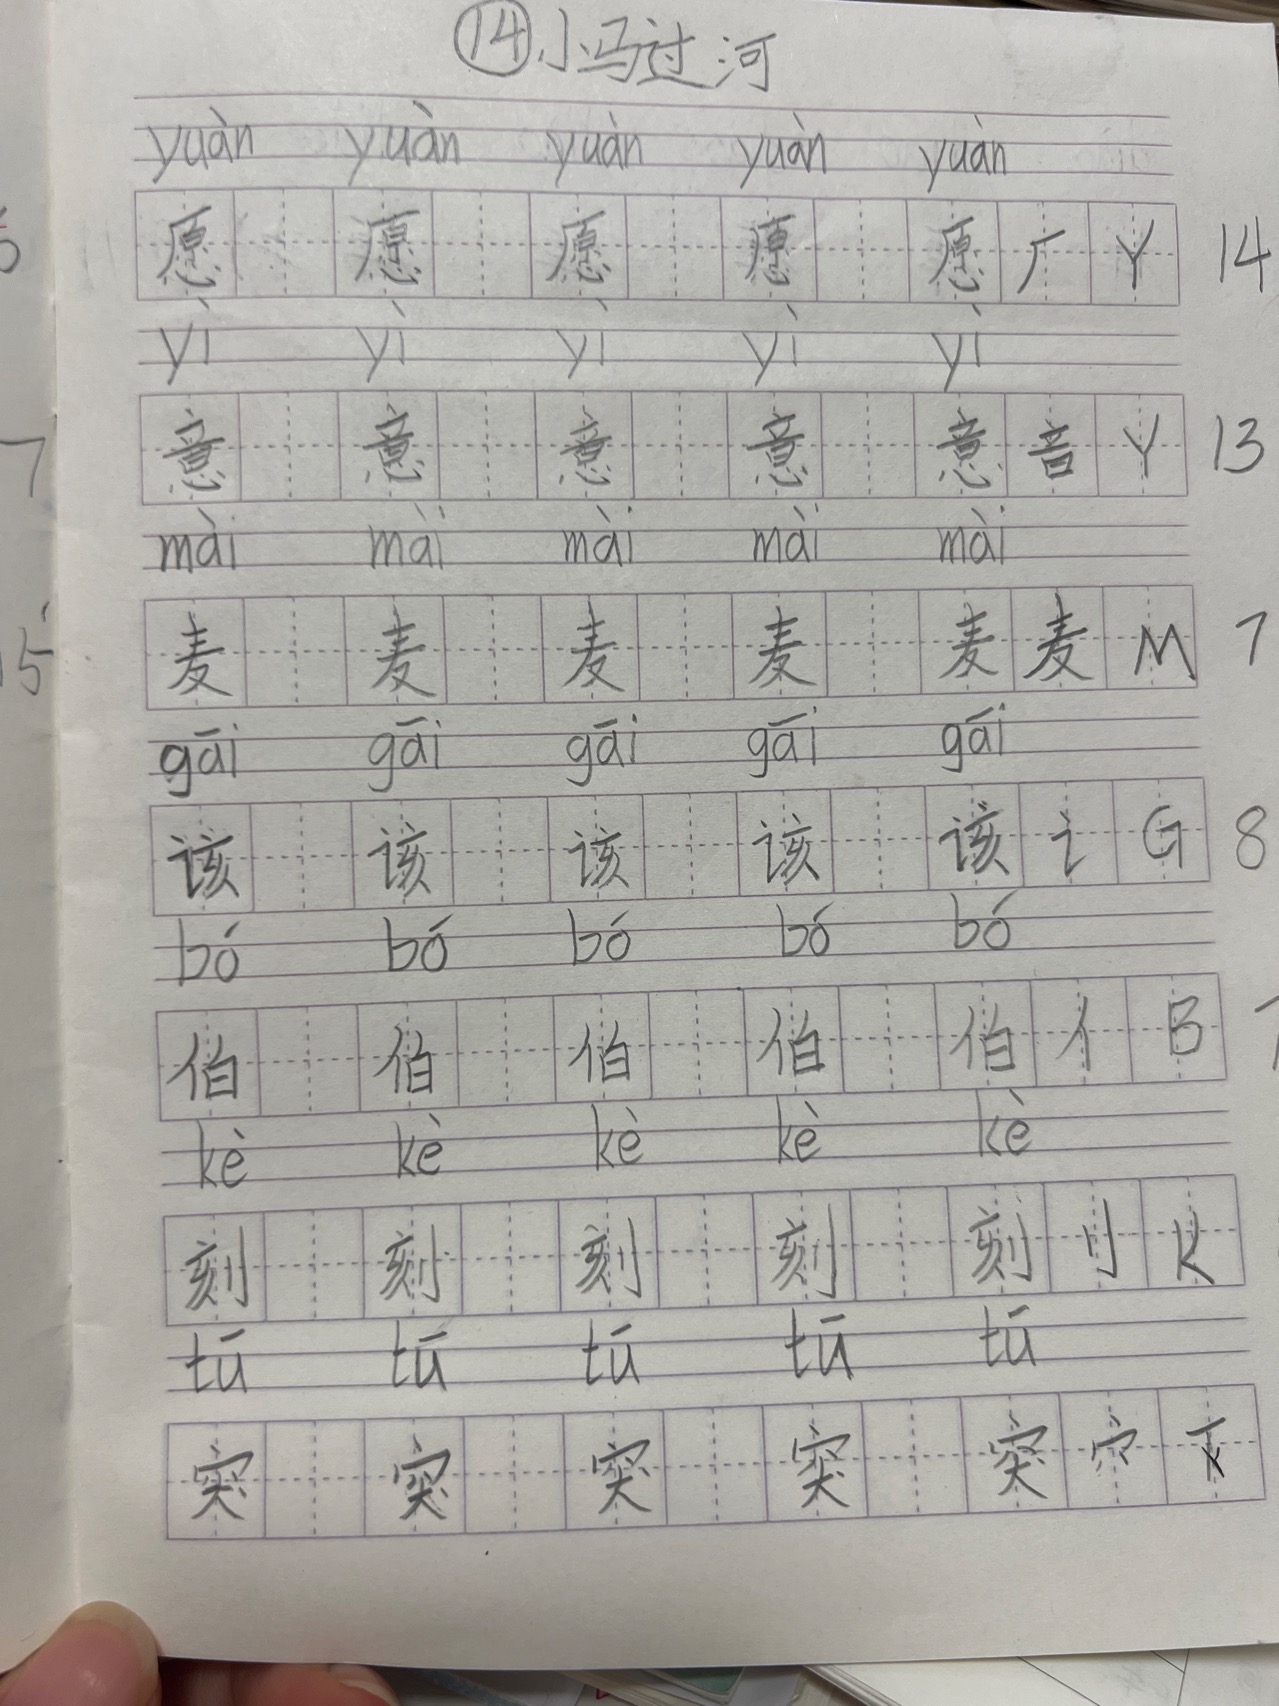 ⑭小马过河
yuàn yuàn yuàn yuàn yuàn
愿 愿 愿 愿 愿 厂 Y 14
yì yì yì yì yì
意 意 意 意 意 音 Y 13
mài mài mài mài mài
麦 麦 麦 麦 麦 麦 M 7
gāi gāi gāi gāi gāi
该 该 该 该 该 讠 G 8
bó bó bó bó bó
伯 伯 伯 伯 伯 亻 B
kè kè kè kè kè
刻 刻 刻 刻 刻 刂 K
tū tū tū tū tū
突 突 突 突 突 穴